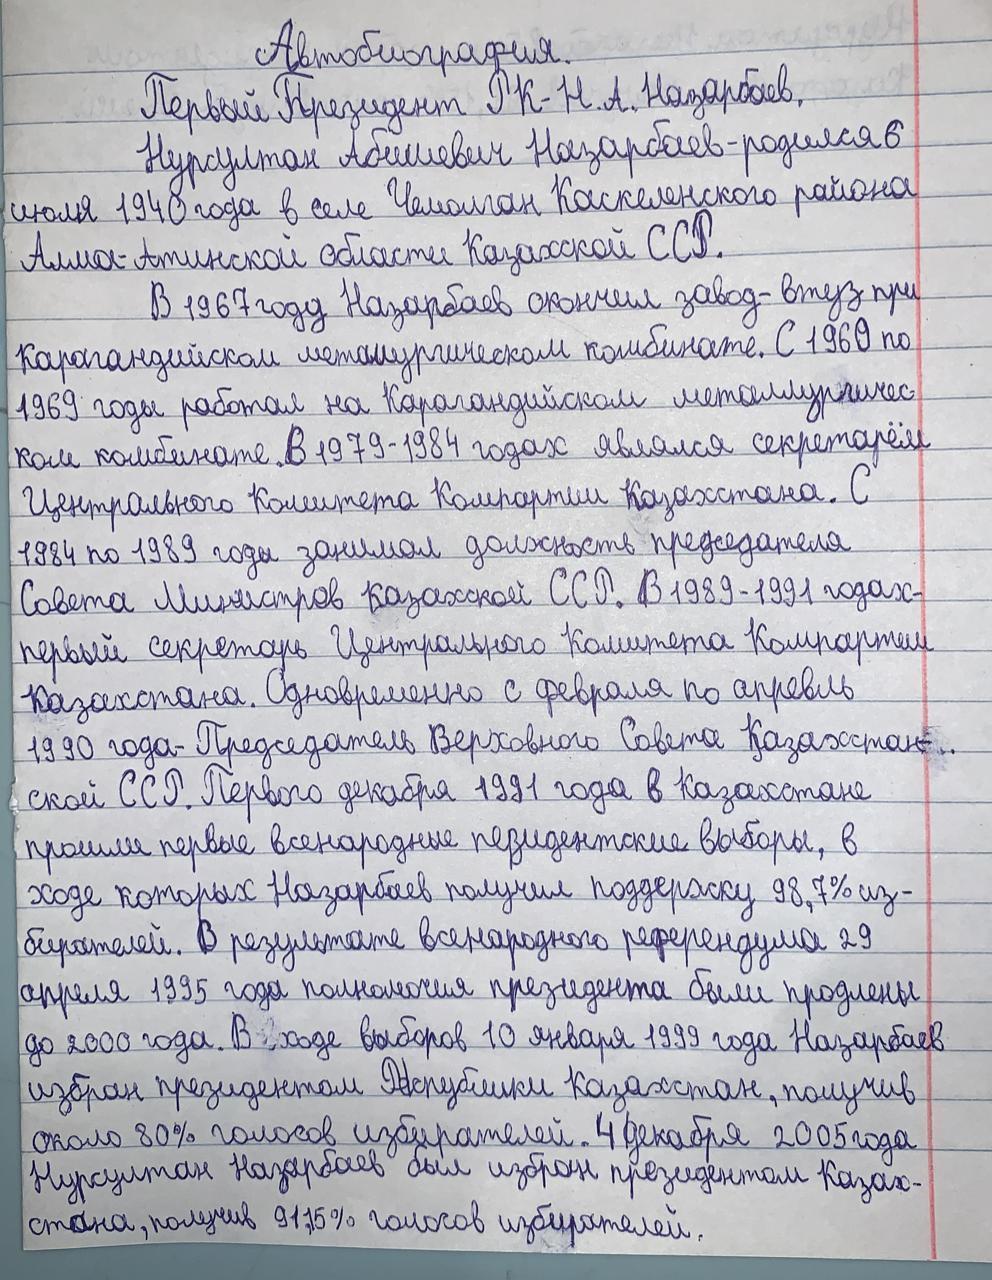 Автобиография.
Первый Президент РК- Н.А. Назарбаев.
Нурсултан Абишевич Назарбаев-родился 6
июля 1940 года в селе Чемолган Каскеленского района
Алма-Атинской области Казахской ССР.
В 1967 году Назарбаев окончил завод-втуз при
Карагандийском металлургическом комбинате. С 1960 по
1969 годы работал на Карагандийском металлургичес-
ком комбинате. В 1979-1984 годах являлся секретарём
Центрального Комитета Компартии Казахстана. С
1984 по 1989 годы занимал должность председателя
Совета Министров Казахской ССР. В 1989-1991 годах-
первый секретарь Центрального Комитета Компартии
Казахстана. Одновременно с февраля по апревль
1990 года- Председатель Верховного Совета Казахстан-
ской ССР. Первого декабря 1991 года в Казахстане
прошли первые всенародные пезидентские выборы, в
ходе которых Назарбаев получил поддержку 98,7% из-
бирателей. В результате всенародного референдума 29
апреля 1995 года полномочия президента были продлены
до 2000 года. В ходе выборов 10 января 1999 года Назарбаев
избран президентом Республики Казахстан, получив
около 80% голосов избирателей. 4 декабря 2005 года
Нурсултан Назарбаев был избран президентом Казах-
стана, получив 91,15% голосов избирателей.